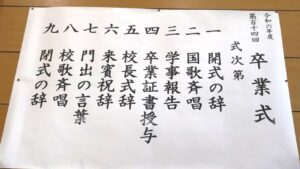 令和六年度
第百十四回
卒業式
式次第
一 開式の辞
二 国歌斉唱
三 学事報告
四 卒業証書授与
五 校長式辞
六 来賓祝辞
七 門出の言葉
八 校歌斉唱
九 閉式の辞